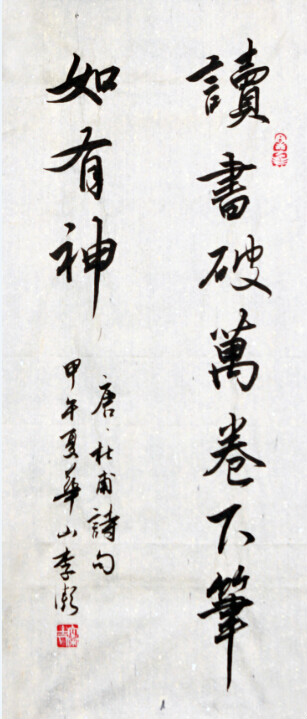 讀書破萬卷下筆
如有神
唐·杜甫詩句
甲午夏華山李凝